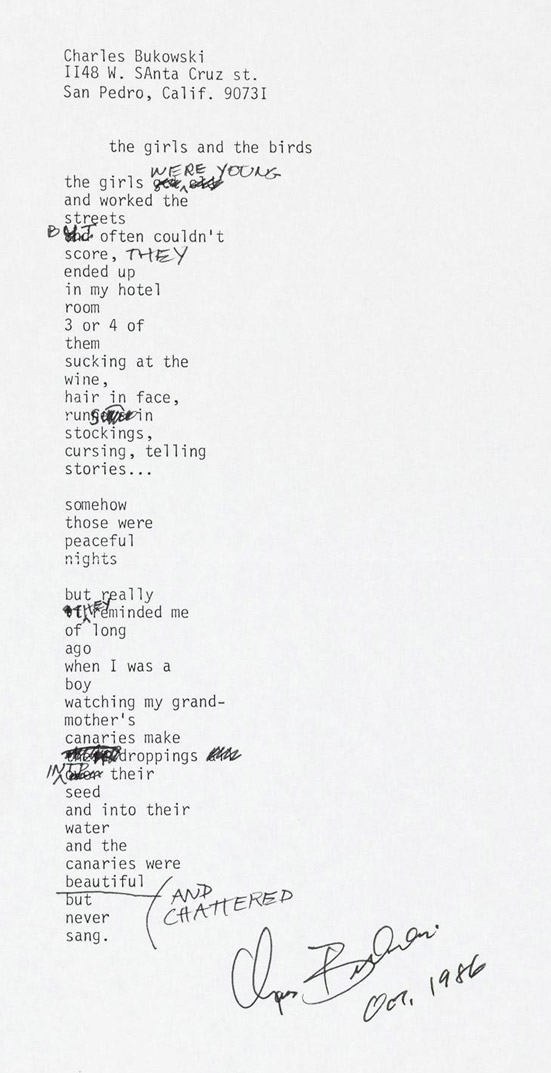 Charles Bukowski
II48 W. SAnta Cruz st.
San Pedro, Calif. 9073I
the girls and the birds
the girls WERE YOUNG
and worked the
streets
BUT often couldn't
score, THEY
ended up
in my hotel
room
3 or 4 of
them
sucking at the
wine,
hair in face,
runs in
stockings,
cursing, telling
stories...
somehow
those were
peaceful
nights
but really
THEY reminded me
of long
ago
when I was a
boy
watching my grand-
mother's
canaries make
droppings
INTO their
seed
and into their
water
and the
canaries were
beautiful
AND
CHATTERED
but
never
sang.
Charles Bukowski
Oct. 1986